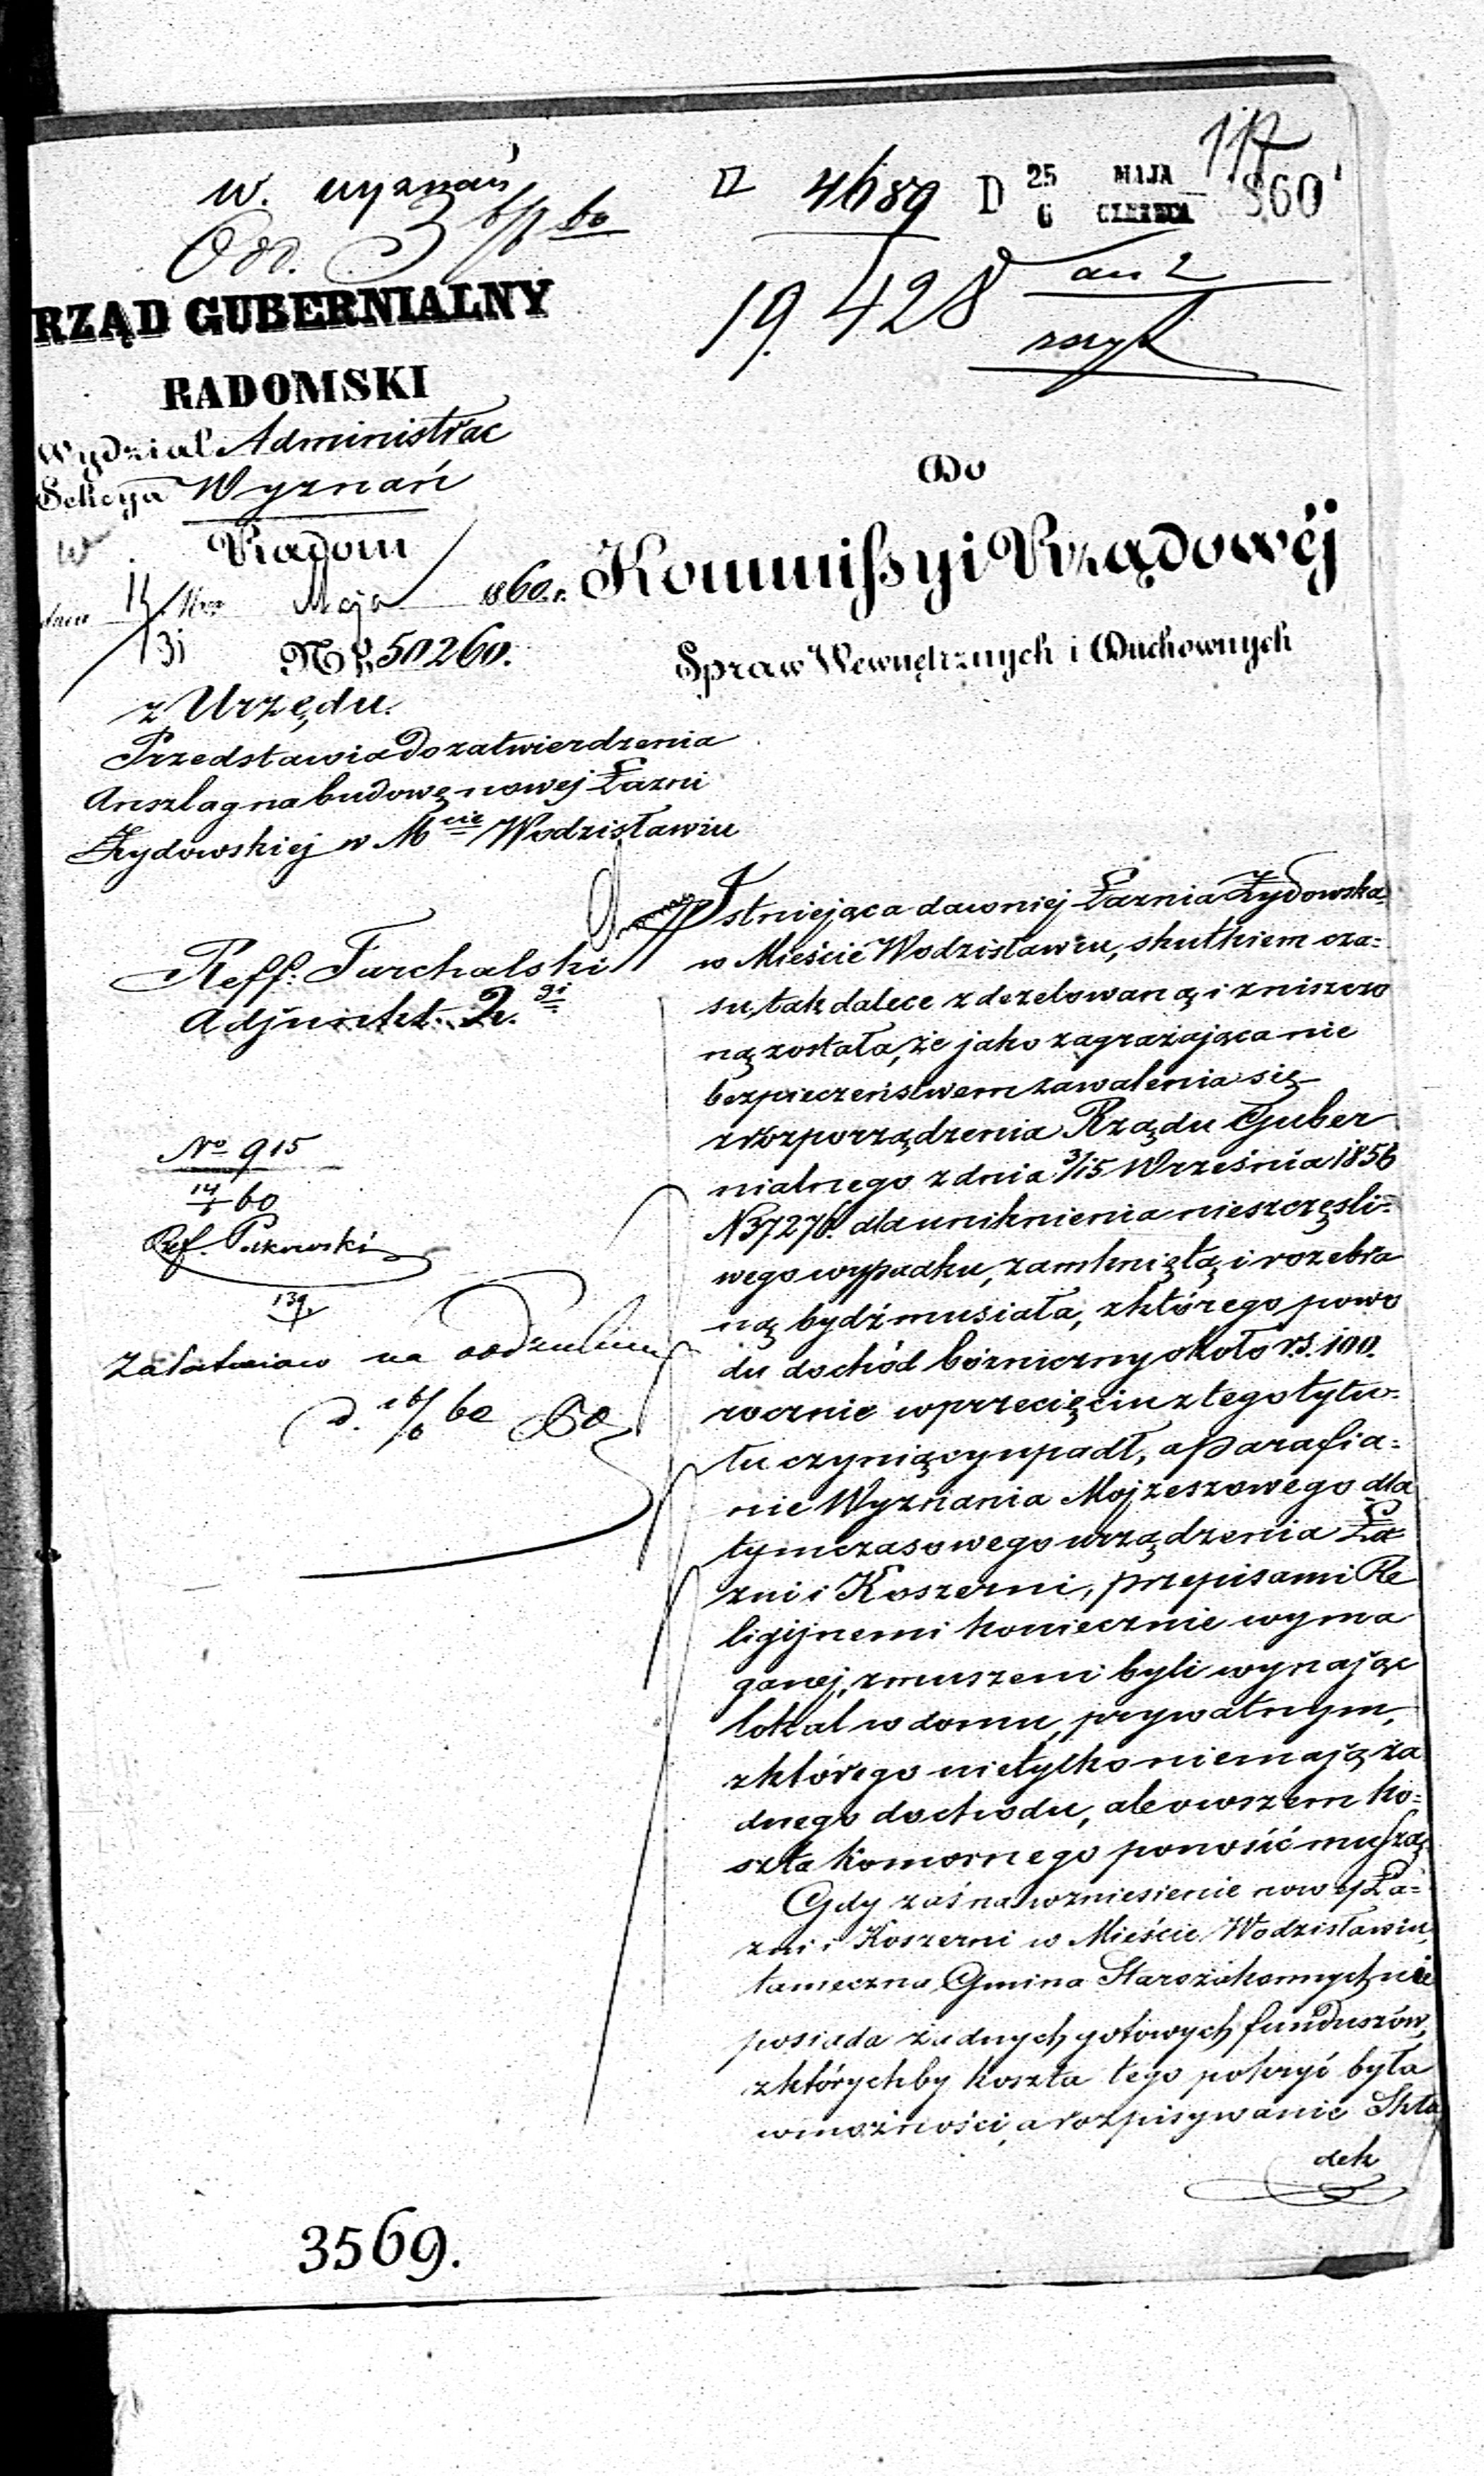 w. wyznań
117
4689 D 25 MAJA 860
6 CZERWCA
19.428
RZĄD GUBERNIALNY
RADOMSKI
Wydział Administrac
Sekcya Wyznań
Radom
dnia 19/31 Maja 1860 r.
Nr 50260.
z Urzędu.
Przedstawia do zatwierdzenia
Anszlag na budowę nowej Łazni
Żydowskiej w Mcie Wodzisławiu
Reff: Furchalski
Adjunkt 2gi
No 915
14/6 60
Ref.
139
Załatwiono na
d. 16/6 60
Do
Kommissyi Rządowéj
Spraw Wewnętrznych i Duchownych
Istniejąca dawniej Łaznia Żydowska
w Mieście Wodzisławiu, skutkiem cza=
su, tak dalece zdezelowaną i zniszczo
ną została, że jako zagrażająca nie
bezpieczeństwem zawalenia się
z rozporządzenia Rządu Guber
nialnego z dnia 3/15 Września 1856
N 37276. dla uniknienia nieszczęśli=
wego wypadku, zamkniętą i rozebra
ną bydź musiała, z którego powo
du dochód bóżniczny około r.s. 100.
rocznie w przecięciu z tego tytu=
łu czyniący upadł, a Parafia=
nie Wyznania Mojżeszowego dla
tymczasowego urządzenia Ła
zni i Koszerni, przepisami Re
ligijnemi koniecznie wyma
ganej, zmuszeni byli wynająć
lokal w domu prywatnym,
z którego nietylko niemają ża
dnego dochodu, ale owszem ko=
szta komornego ponosić muszą.
Gdy zaś na wzniesienie nowej Ła=
zni i Koszerni w Mieście Wodzisławiu,
tameczna Gmina Starozakonnych nie
posiada żadnych gotowych funduszów,
z którychby koszta tego pokryć była
w możności, a rozpisywanie Skła
dek
3569.